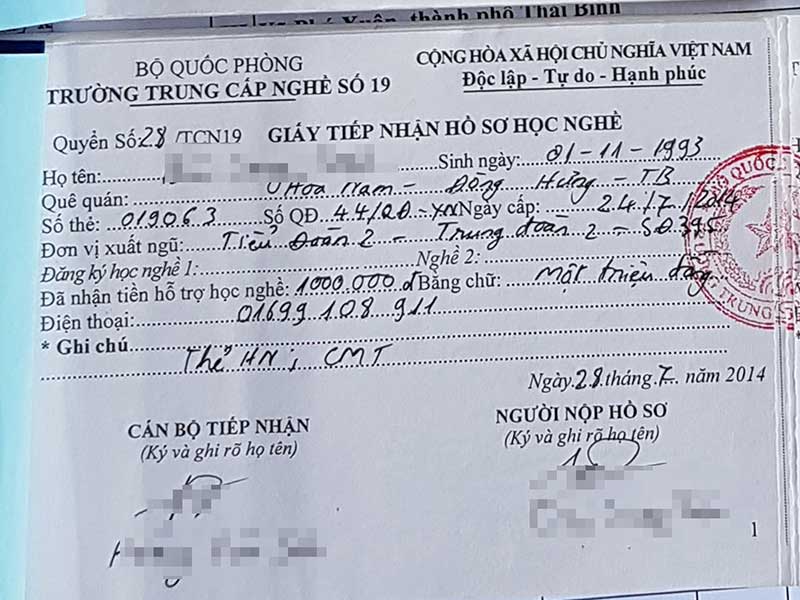 Phú Xuân, thành phố Thái Bình
BỘ QUỐC PHÒNG
TRƯỜNG TRUNG CẤP NGHỀ SỐ 19
CỘNG HÒA XÃ HỘI CHỦ NGHĨA VIỆT NAM
Độc lập - Tự do - Hạnh phúc
Quyển Số 28 /TCN19
GIẤY TIẾP NHẬN HỒ SƠ HỌC NGHỀ
Họ tên: Sinh ngày: 01-11-1993
Quê quán: Hoa Nam - Đông Hưng - TB
Số thẻ: 019063 Số QĐ: 44/QĐ-XN Ngày cấp: 24/7/2014
Đơn vị xuất ngũ: Tiểu Đoàn 2 - Trung đoàn 2 - SĐ.395
Đăng ký học nghề 1: Nghề 2:
Đã nhận tiền hỗ trợ học nghề: 1000.000 đ Bằng chữ: Một triệu đồng
Điện thoại: 01699.108.911
* Ghi chú
Thẻ HN; CMT
Ngày 28 tháng 7 năm 2014
CÁN BỘ TIẾP NHẬN
(Ký và ghi rõ họ tên)
NGƯỜI NỘP HỒ SƠ
(Ký và ghi rõ họ tên)
1